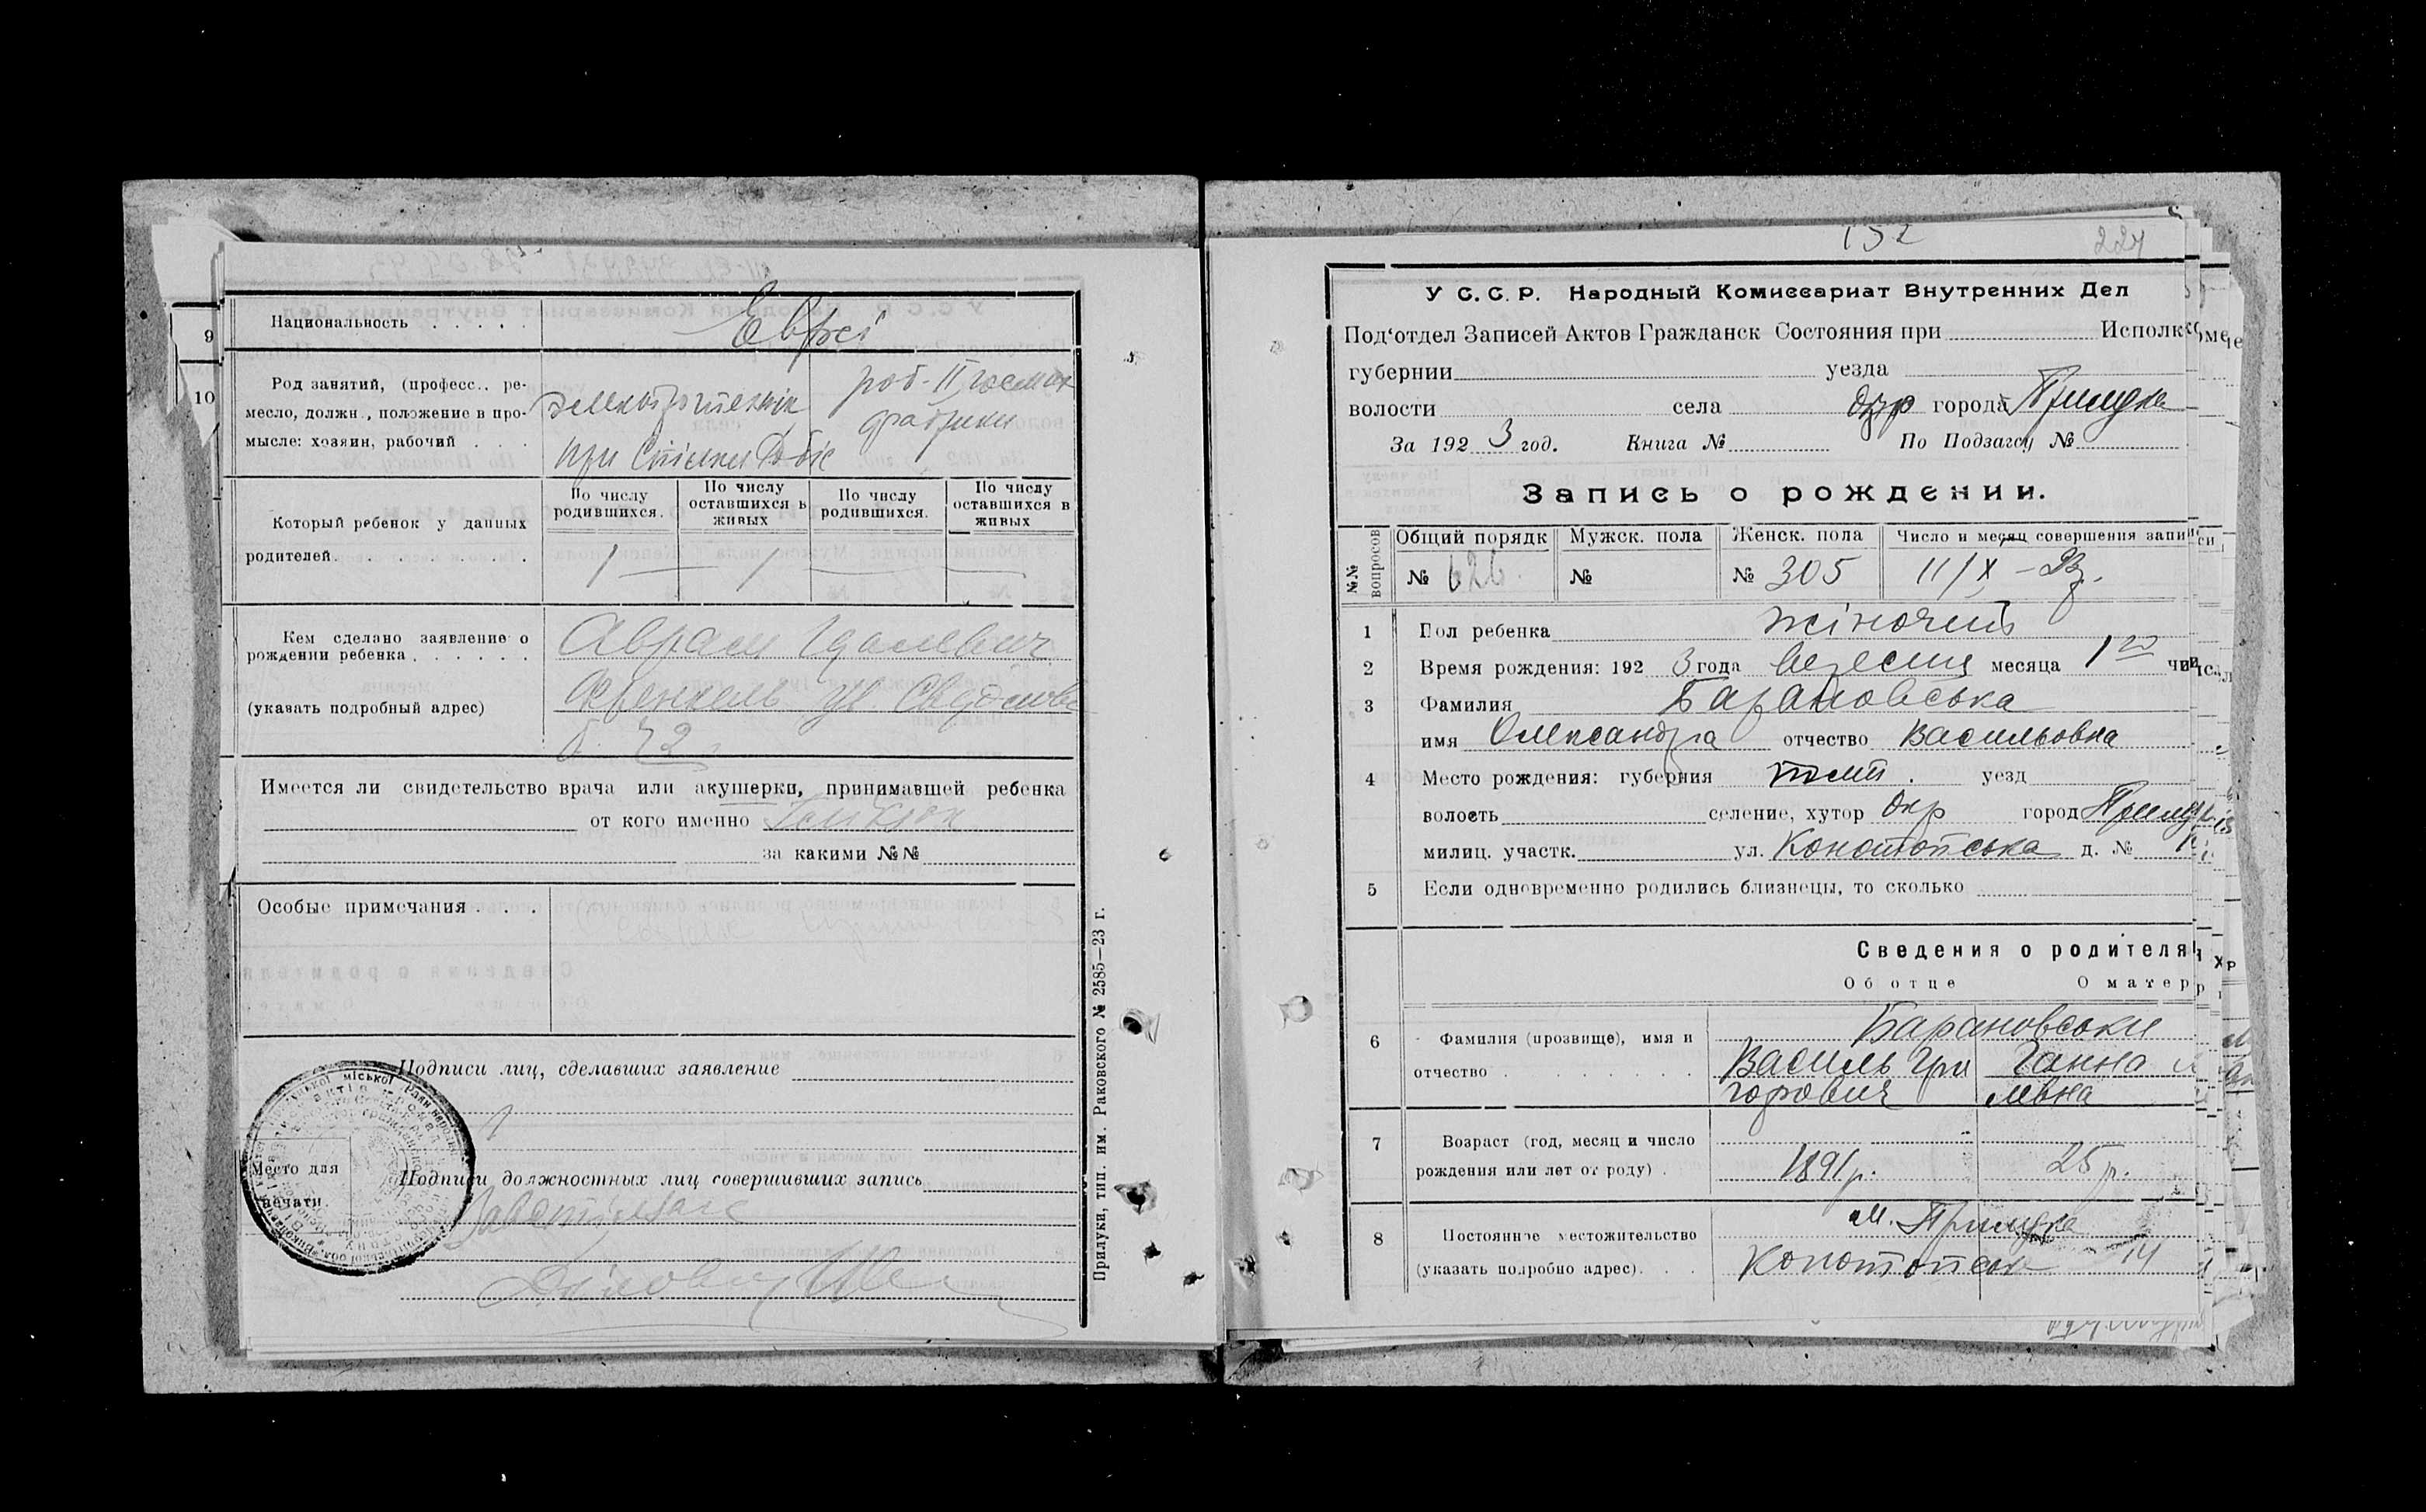 9
Национальность . . . . .
Евреї
10
Род занятий, (професс., ре-
месло, должн., положение в про-
мысле: хозяин, рабочий . . .
електротехнік
при Спілки Робіс
роб. II госмах
фабрики
Который ребенок у данных
родителей. . . . . . . . .
По числу родившихся.
По числу оставшихся в живых
По числу родившихся.
По числу оставшихся в живых
1 — 1 —
Кем сделано заявление о
рождении ребенка . . . . . .
(указать подробный адрес)
Аврам
Френкель ул.
Имеется ли свидетельство врача или акушерки, принимавшей ребенка
от кого именно
за какими №№
Особые примечания . . .
Подписи лиц, сделавших заявление
Место для
печати.
Подписи должностных лиц совершивших запись
Прилуки, тип. им. Раковского № 2585—23 г.
152
224
У С. С. Р. Народный Комиссариат Внутренних Дел
Под'отдел Записей Актов Гражданск Состояния при Исполко
губернии уезда
волости села окр города Прилука
За 192 3 год. Книга № По Подзагсу №
Запись о рождении.
№№ вопросов
Общий порядк
№ 626
Мужск. пола
№
Женск. пола
№ 305
Число и месяц совершения записи
11/X – 23.
1 Пол ребенка жіночий
2 Время рождения: 192 3 года вересня месяца 1го чис
3 Фамилия Барановська
имя Олександра отчество Васильовна
4 Место рождения: губерния полт. уезд
волость селение, хутор окр город Прилук
милиц. участк. ул. Конотопська д. №
5 Если одновременно родились близнецы, то сколько
Сведения о родителях
Об отце О матер
6 Фамилия (прозвище), имя и
отчество . . . . . . .
Барановськи
Василь Гри
горович
Ганна
ївна
7 Возраст (год, месяц и число
рождения или лет от роду) .
1891 р. 25 р.
8 Постоянное местожительство
(указать подробно адрес). . .
м. Прилука
Конотопськ 14